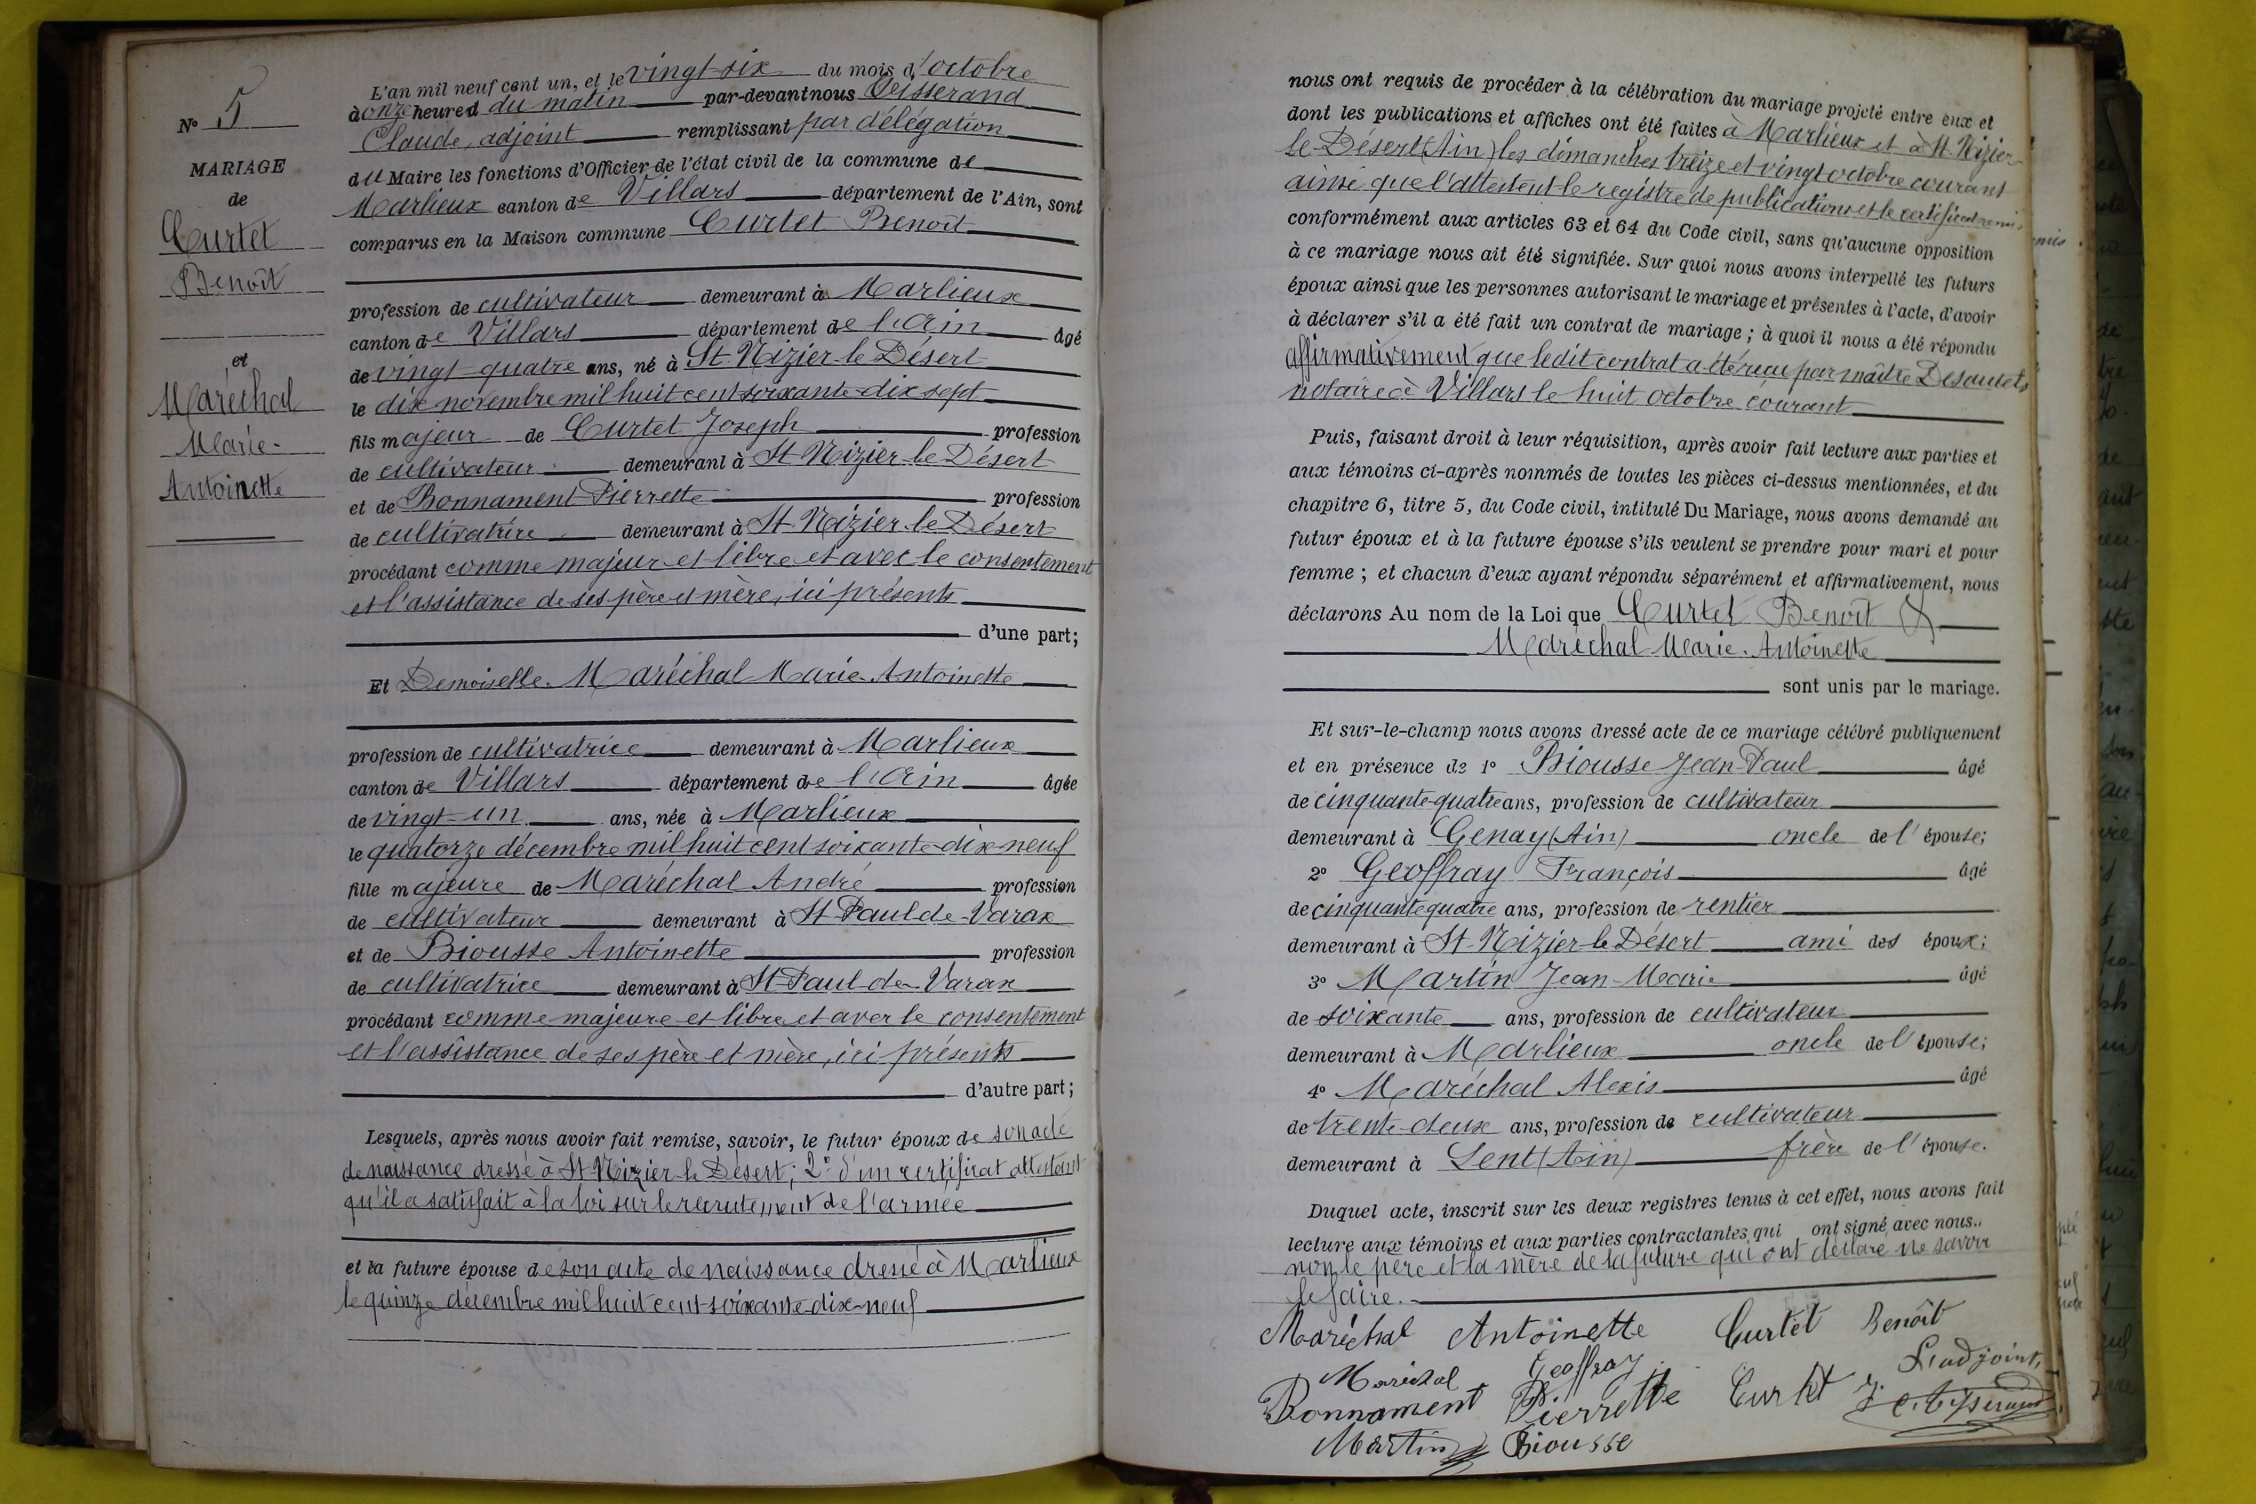 N° 5
MARIAGE
de
Curtet
Benoît
et
Maréchal
Marie-
Antoinette
L'an mil neuf cent un, et le vingt-six du mois d'octobre
à onze heures du matin par-devant nous Teisserand
Claude, adjoint remplissant par délégation
du Maire les fonctions d'Officier de l'état civil de la commune de
Marlieux canton de Villars département de l'Ain, sont
comparus en la Maison commune Curtet Benoît
profession de cultivateur demeurant à Marlieux
canton de Villars département de l'Ain âgé
de vingt-quatre ans, né à St-Nizier-le-Désert
le dix novembre mil huit cent soixante-dix sept
fils majeur de Curtet Joseph profession
de cultivateur demeurant à St-Nizier-le-Désert
et de Bonnament Pierrette profession
de cultivatrice demeurant à St-Nizier-le-Désert
procédant comme majeur et libre et avec le consentement
et l'assistance de ses père et mère, ici présents
d'une part;
Et Demoiselle Maréchal Marie-Antoinette
profession de cultivatrice demeurant à Marlieux
canton de Villars département de l'Ain âgée
de vingt-un ans, née à Marlieux
le quatorze décembre mil huit cent soixante-dix-neuf
fille majeure de Maréchal André profession
de cultivateur demeurant à St-Paul-de-Varax
et de Biousse Antoinette profession
de cultivatrice demeurant à St-Paul-de-Varax
procédant comme majeure et libre et avec le consentement
et l'assistance de ses père et mère, ici présents
d'autre part;
Lesquels, après nous avoir fait remise, savoir, le futur époux de son acte
de naissance dressé à St-Nizier-le-Désert; 2° d'un certificat attestant
qu'il a satisfait à la loi sur le recrutement de l'armée
et la future épouse de son acte de naissance dressé à Marlieux
le quinze décembre mil huit cent soixante-dix-neuf
nous ont requis de procéder à la célébration du mariage projeté entre eux et
dont les publications et affiches ont été faites à Marlieux et à St-Nizier-
le-Désert (Ain) les dimanches treize et vingt octobre courant
ainsi que l'attestent le registre de publications et le certificat remis
conformément aux articles 63 et 64 du Code civil, sans qu'aucune opposition
à ce mariage nous ait été signifiée. Sur quoi nous avons interpellé les futurs
époux ainsi que les personnes autorisant le mariage et présentes à l'acte, d'avoir
à déclarer s'il a été fait un contrat de mariage; à quoi il nous a été répondu
affirmativement que ledit contrat a été reçu par maître Desautels
notaire à Villars le huit octobre courant
Puis, faisant droit à leur réquisition, après avoir fait lecture aux parties et
aux témoins ci-après nommés de toutes les pièces ci-dessus mentionnées, et du
chapitre 6, titre 5, du Code civil, intitulé Du Mariage, nous avons demandé au
futur époux et à la future épouse s'ils veulent se prendre pour mari et pour
femme; et chacun d'eux ayant répondu séparément et affirmativement, nous
déclarons Au nom de la Loi que Curtet Benoît &
Maréchal Marie-Antoinette
sont unis par le mariage.
Et sur-le-champ nous avons dressé acte de ce mariage célébré publiquement
et en présence de 1° Biousse Jean-Paul âgé
de cinquante-quatre ans, profession de cultivateur
demeurant à Genay (Ain) oncle de l'épouse;
2° Geoffray François âgé
de cinquante quatre ans, profession de rentier
demeurant à St-Nizier-le-Désert ami des époux;
3° Martin Jean-Marie âgé
de soixante ans, profession de cultivateur
demeurant à Marlieux oncle de l'épouse;
4° Maréchal Alexis âgé
de trente-deux ans, profession de cultivateur
demeurant à Lent (Ain) frère de l'épouse.
Duquel acte, inscrit sur les deux registres tenus à cet effet, nous avons fait
lecture aux témoins et aux parties contractantes qui ont signé avec nous..
non le père et la mère de la future qui ont déclaré ne savoir
le faire.
Maréchal Antoinette Curtet Benoît
Maréchal Geoffray L'adjoint,
Bonnament Pierrette Curtet J.
Martin Biousse